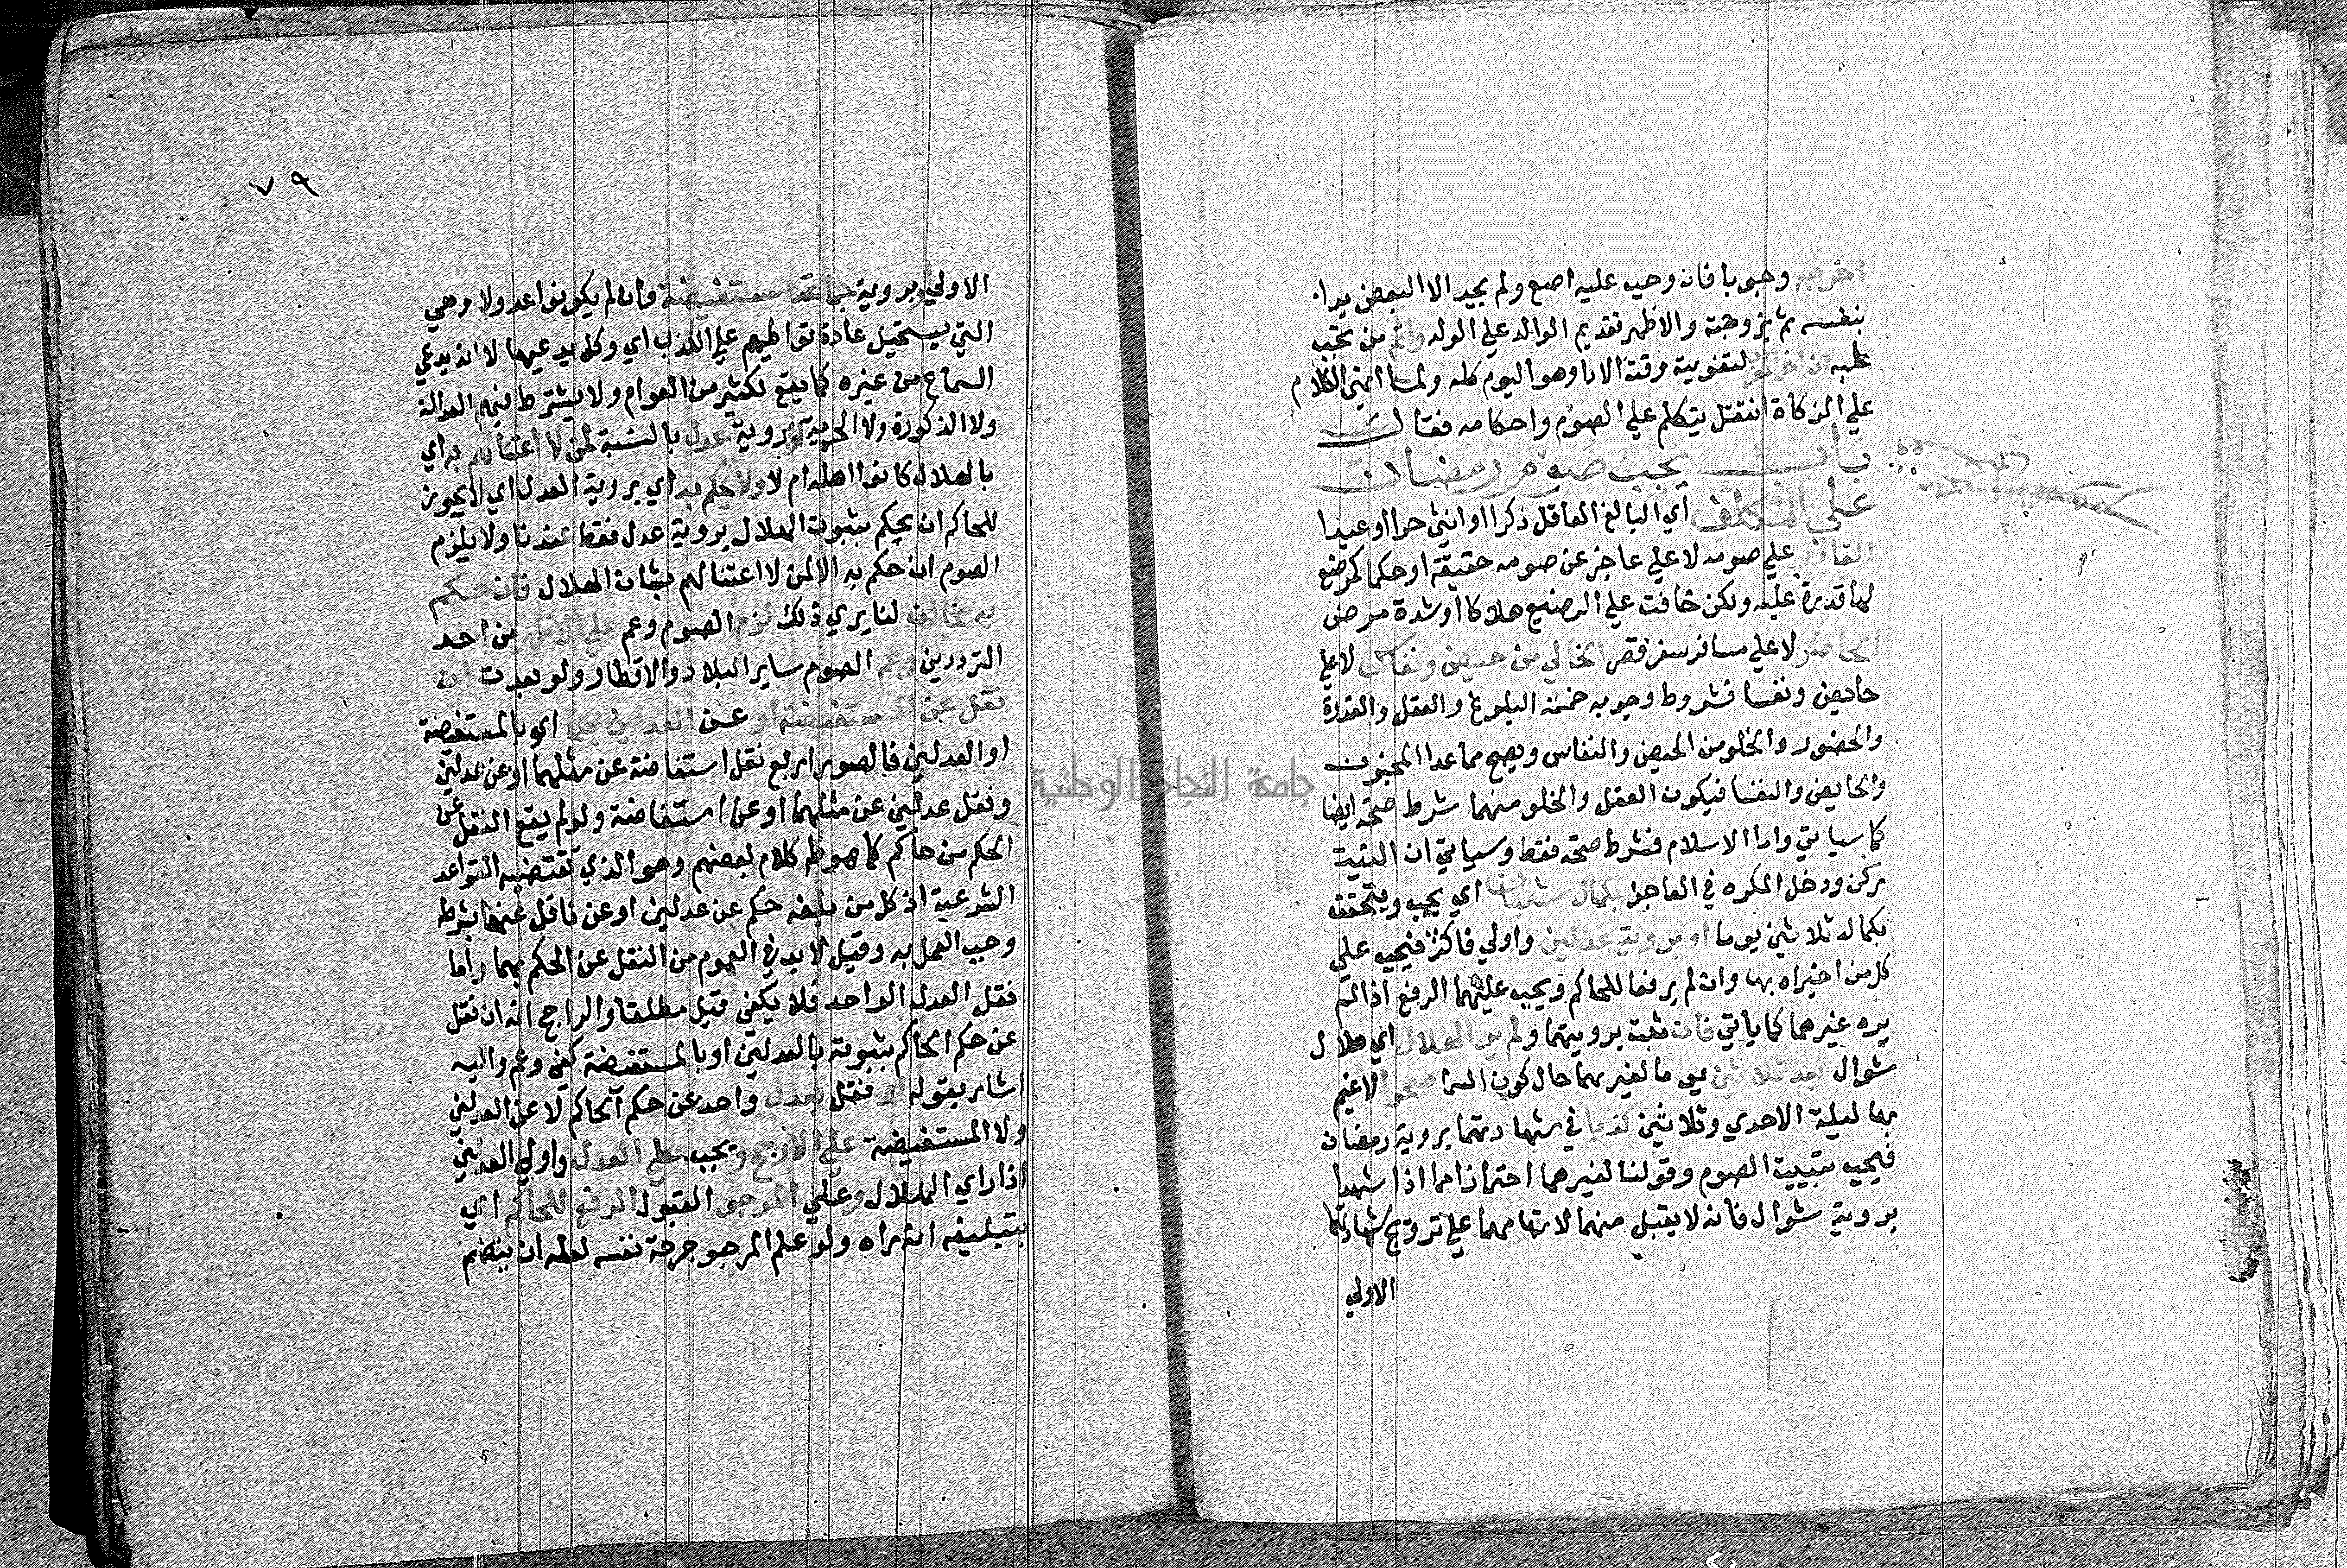 اخرجه وجوبا فان وجب عليه اصع ولم يجد الا البعض بدا
بنفسه ثم بزوجته والاظهر تقديم الوالد علي الولد واثم من تجب
عليه ان اخر لتفويته وقت الادا وهو اليوم كله ولما انهي الكلام
علي الزكاة انتقل يتكلم علي الصوم واحكامه فقال
باب يجب صوم رمضان
علي المكلف اي البالغ العاقل ذكرا او انثي حرا او عبدا
القادر علي صومه لا علي عاجز عن صومه حقيقة او حكما كمرضع
لها قدرة عليه ولكن خافت علي الرضيع هلاكا او شدة مرض
الحاضر لا علي مسافر سفر قصر الخالي من حيض ونفاس لا علي
حايض ونفسا فشروط وجوبه خمسة البلوغ والعقل والقدرة
والحضور والخلو من الحيض والنفاس ويصح مما عدا المجنون
والحايض والنفسا فيكون العقل والخلو منهما شرط صحة ايضا
كما سياتي واما الاسلام فشرط صحة فقط وسياتي ان النية
ركن ودخل المكره في العاجز بكمال شعبان اي يجب ويتحقق
بكماله ثلاثين يوما او بروية عدلين واولي فاكثر فيجب علي
كل من اخبراه بها وان لم يرفعا للحاكم ويجب عليهما الرفع اذا لم
يره غيرهما كما ياتي فان ثبت برويتهما ولم ير الهلال اي هلال
شوال بعد ثلاثين يوما لغيرهما حال كون السما صحوا لا غيم
بها ليلة الاحدي وثلاثين كذبا في شهادتهما بروية رمضان
فيجب تبييت الصوم وقولنا لغيرهما احترازا مما اذا شهدا
بروية شوال فانه لا يقبل منهما لاتهامهما علي ترويج شهادتهما
الاولي
٧٩
الاولي او بروية جماعة مستفيضة وان لم يكونوا عدولا وهي
التي يستحيل عادة تواطيهم علي الكذب اي وكل يدعيها لا انه يدعي
السماع من غيره كما يقع لكثير من العوام ولا يشترط فيهم العدالة
ولا الذكورة ولا الحرية او بروية عدل بالنسبة لمن لا اعتنا لهم به اي
بالهلال كانوا اهله ام لا ولا يحكم به اي بروية العدل اي لا يجوز
للحاكم ان يحكم بثبوت الهلال بروية عدل فقط عندنا ولا يلزم
الصوم ان حكم به الا لمن لا اعتنا لهم بشان الهلال فان حكم
به مخالف لنا يري ذلك لزم الصوم وعم علي الاظهر من احد
الترددين وعم الصوم ساير البلاد والاقطار ولو بعدت ان
نقل عن المستفيضة او عن العدلين بهما اي بالمستفيضة
او العدلين فالصور اربع نقل استفاضة عن مثلهما او عن عدلين
ونقل عدلين عن مثلهما او عن استفاضة ولو لم يقع النقل عن
الحكم من حاكم كما هو ظ كلام بعضهم وهو الذي تقتضيه القواعد
الشرعية اذ كل من بلغه حكم عن عدلين او عن ناقل عنهما بشرطه
وجب العمل به وقيل لا بد في العموم من النقل عن الحكم بهما واما
نقل العدل الواحد فلا يكفي قيل مطلقا والراجح انه ان نقل
عن حكم الحاكم بثبوته بالعدلين او بالمستفيضة كفي وعم واليه
اشار بقوله او نقل بعدل واحد عن حكم الحاكم لا عن العدلين
ولا المستفيضة علي الارجح ويجب علي العدل واولي العدلين
اذا راي الهلال وعلي المرجو القبول الرفع للحاكم اي
بتبليغه انه راه ولو علم المرجو جرحة نفسه لعله ان ينضم
جامعة النجاح الوطنية